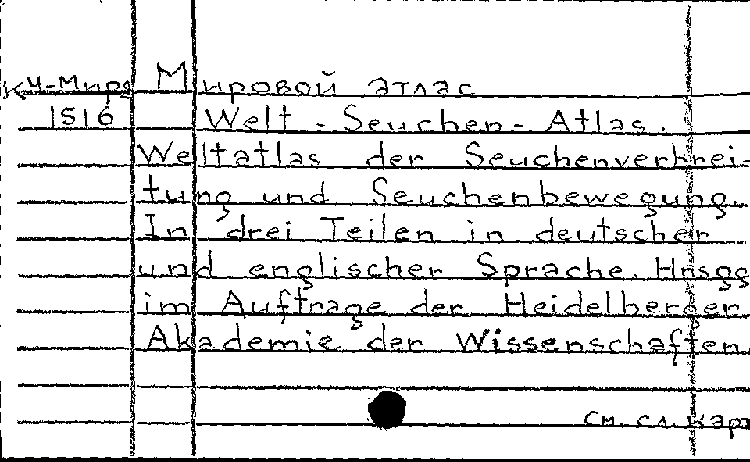 КЧ-Мира Мировой атлас
1516 Welt-Seuchen-Atlas.
Weltatlas der Seuchenverbrei-
tung und Seuchenbewegung.
In drei Teilen in deutscher
und englischer Sprache. Hrsgg
im Auftrage der Heidelberger
Akademie der Wissenschaften.
см. сл. карт